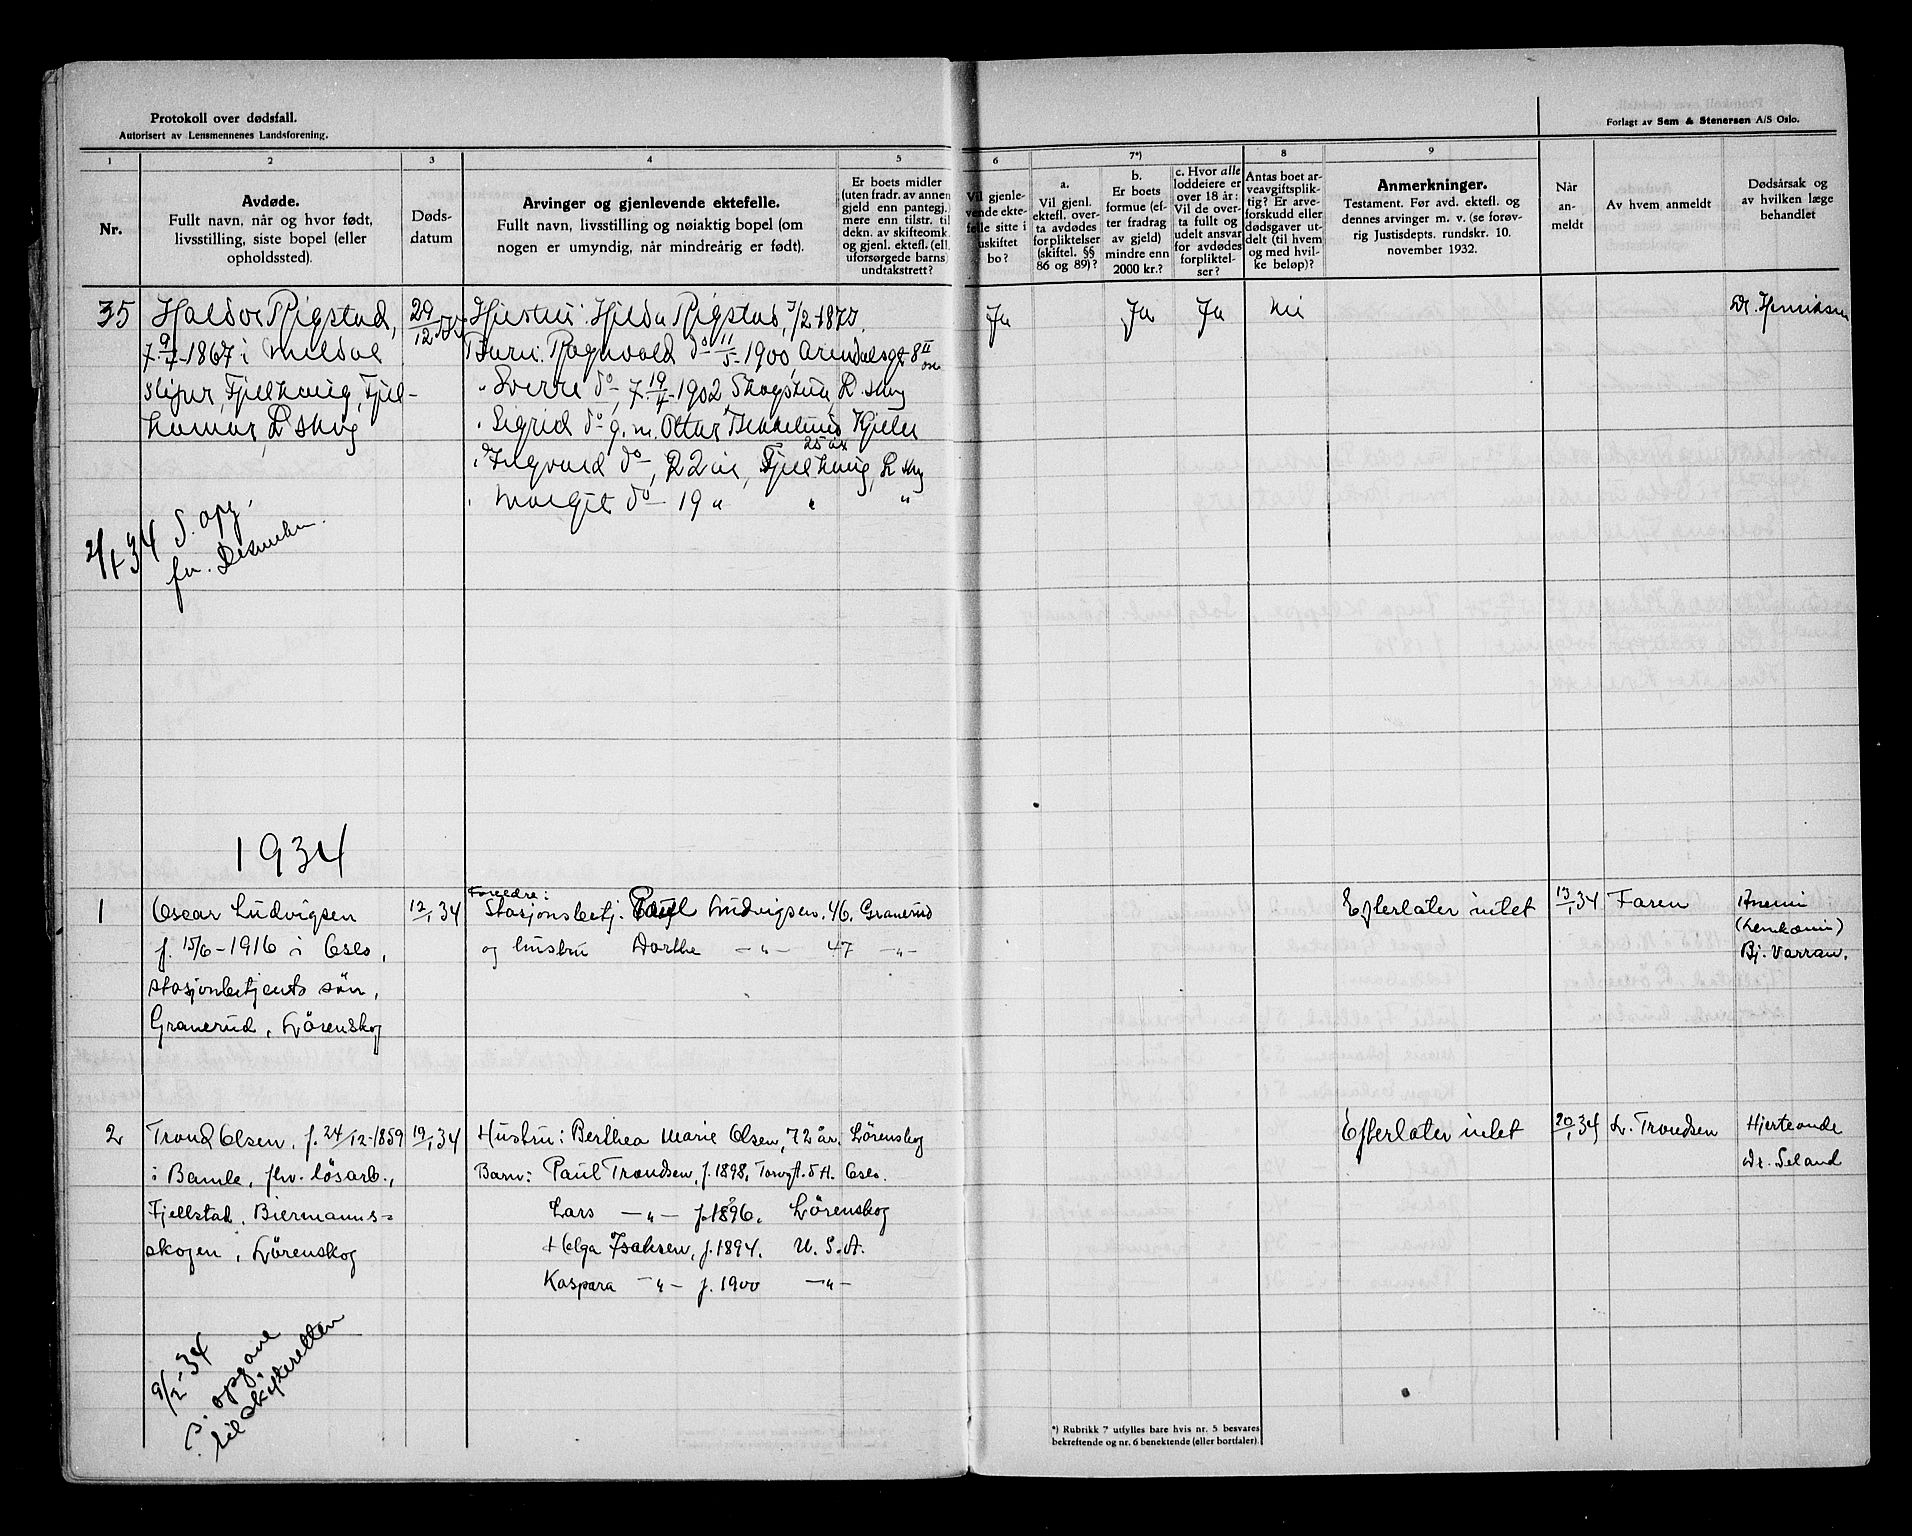 Protokoll over dødsfall.
Autorisert av Lensmennenes Landsforening.
Forlagt av Sem & Stenersen A/S Oslo.
1 2 3 4 5 6 7*) 8 9
Nr.
Avdøde.
Fullt navn, når og hvor født,
livsstilling, siste bopel (eller
opholdssted).
Døds-
datum
Arvinger og gjenlevende ektefelle.
Fullt navn, livsstilling og nøiaktig bopel (om
nogen er umyndig, når mindreårig er født).
Er boets midler
(uten fradr. av annen
gjeld enn pantegj.)
mere enn tilstr. til
dekn. av skifteomk.
og gjenl. ektefl. (ell.
uforsørgede barns)
undtakstrett?
Vil gjenle-
vende ekte-
felle sitte i
uskiftet
bo?
a.
Vil gjenl.
ektefl. over-
ta avdødes
forpliktelser
(skiftel. §§
86 og 89)?
b.
Er boets
formue (ef-
ter fradrag
av gjeld)
mindre enn
2000 kr.?
c. Hvor alle
loddeiere er
over 18 år:
Vil de over-
ta fullt og
udelt ansvar
for avdødes
forpliktel-
ser?
Antas boet ar-
veavgiftsplik-
tig? Er arve-
forskudd eller
dødsgaver ut-
delt (til hvem
og med hvil-
ke beløp)?
Anmerkninger.
Testament. Før avd. ektefl. og
dennes arvinger m. v. (se forøv-
rig Justisdepts. rundskr. 10.
november 1932.
Når
an-
meldt
Av hvem anmeldt
Dødsårsak og
av hvilken læge
behandlet
35 Haldor Rigstad, 29/12 Hustru: Hilda Rigstad, Ja Ja Ja Nei Dr. Henriksen
1867 i Meldal Barn: Ragnvald do 11/5-1900, Arendalsgt 8 II
Fjellhaug, Fjel- " Sverre do, 19/4-1902 Skogstun, L.skog
hamar, L.skog " Sigrid do g. m. Ottar
25 år
" Ingvald do, 22 år, Fjellhaug, L.skog
" Margit do 19 " " "
2/1-34 S. opg.
1934
1 Oscar Ludvigsen 12/1 34 Foreldre: Stasjonsbetj. Paul Ludvigsen, 46, Granerud Efterlater intet 13/1 34 Faren Anemi
f. 15/6-1916 i Oslo, og hustru Dorthe —"— 47 —"— (Leukæmi)
stasjonbetjents søn, Bj. Varran.
Granerud, Lörenskog
2 Trond Olsen, f. 24/12-1859 19/1 34 Hustru: Berthea Marie Olsen, 72 år, Lörenskog Efterlater intet 20/1 34 L. Trondsen Hjerteonde
i Bamle, fhv. lösarb., Barn: Paul Trondsen, f. 1898, Torvgt. 5 A. Oslo. Dr. Seland
Fjellstad, Biermanns- Lars —"— f. 1896, Lörenskog
skogen, Lörenskog Helga Isaksen, f. 1894. U. S. A.
Kaspara —"— f. 1900 —"—
9/2-34
S. opgave
til skifteretten
*) Rubrikk 7 utfylles bare hvis nr. 5 besvares
bekreftende og nr. 6 benektende (eller bortfaler).